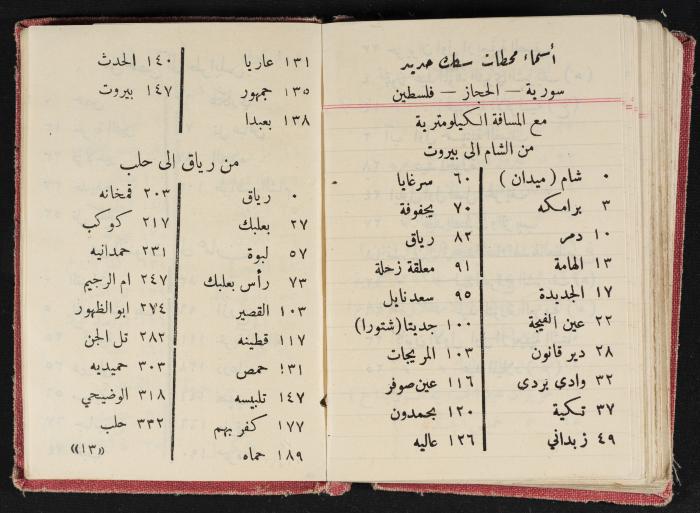 أسماء محطات سكك حديد
سورية – الحجاز – فلسطين
مع المسافة الكيلومترية
من الشام الى بيروت
٠ شام (ميدان)
٣ برامكه
١٠ دمر
١٣ الهامة
١٧ الجديدة
٢٢ عين الفيجة
٢٨ دير قانون
٣٢ وادي بردى
٣٧ تكية
٤٩ زبداني
٦٠ سرغايا
٧٠ يحفوفة
٨٢ رياق
٩١ معلقة زحلة
٩٥ سعدنايل
١٠٠ جديتا (شتورا)
١٠٣ المريجات
١١٦ عين صوفر
١٢٠ بحمدون
١٢٦ عاليه
١٣١ عاريا
١٣٥ جمهور
١٣٨ بعبدا
١٤٠ الحدث
١٤٧ بيروت
من رياق الى حلب
٠ رياق
٢٧ بعلبك
٥٧ لبوة
٧٣ رأس بعلبك
١٠٣ القصير
١١٧ قطينه
١٣! حمص
١٤٧ تلبيسه
١٧٧ كفر بهم
١٨٩ حماه
٢٠٣ قمخانه
٢١٧ كوكب
٢٣١ حمدانيه
٢٤٧ ام الرجيم
٢٧٤ ابو الظهور
٢٨٢ تل الجن
٣٠٣ حميديه
٣١٨ الوضيحي
٣٣٢ حلب
«١٣»